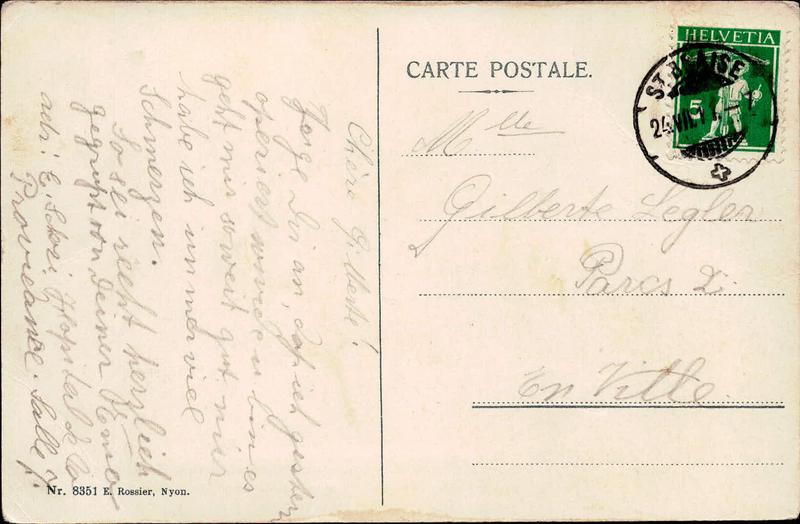 Chère Gilberte!
Zeige Dir an, daß ich gestern
operiert worden bin es
geht mir soweit gut nur
habe ich immer viel
Schmerzen.
So sei recht herzlich
gegrüßt von Deiner
adr: E. Hopital de la
Providence. Salle 7.
CARTE POSTALE.
HELVETIA
5
ST. BLAISE
24.VII.1
Mlle
Gilberte Legler
Parcs 2.
En Ville.
Nr. 8351 E. Rossier, Nyon.